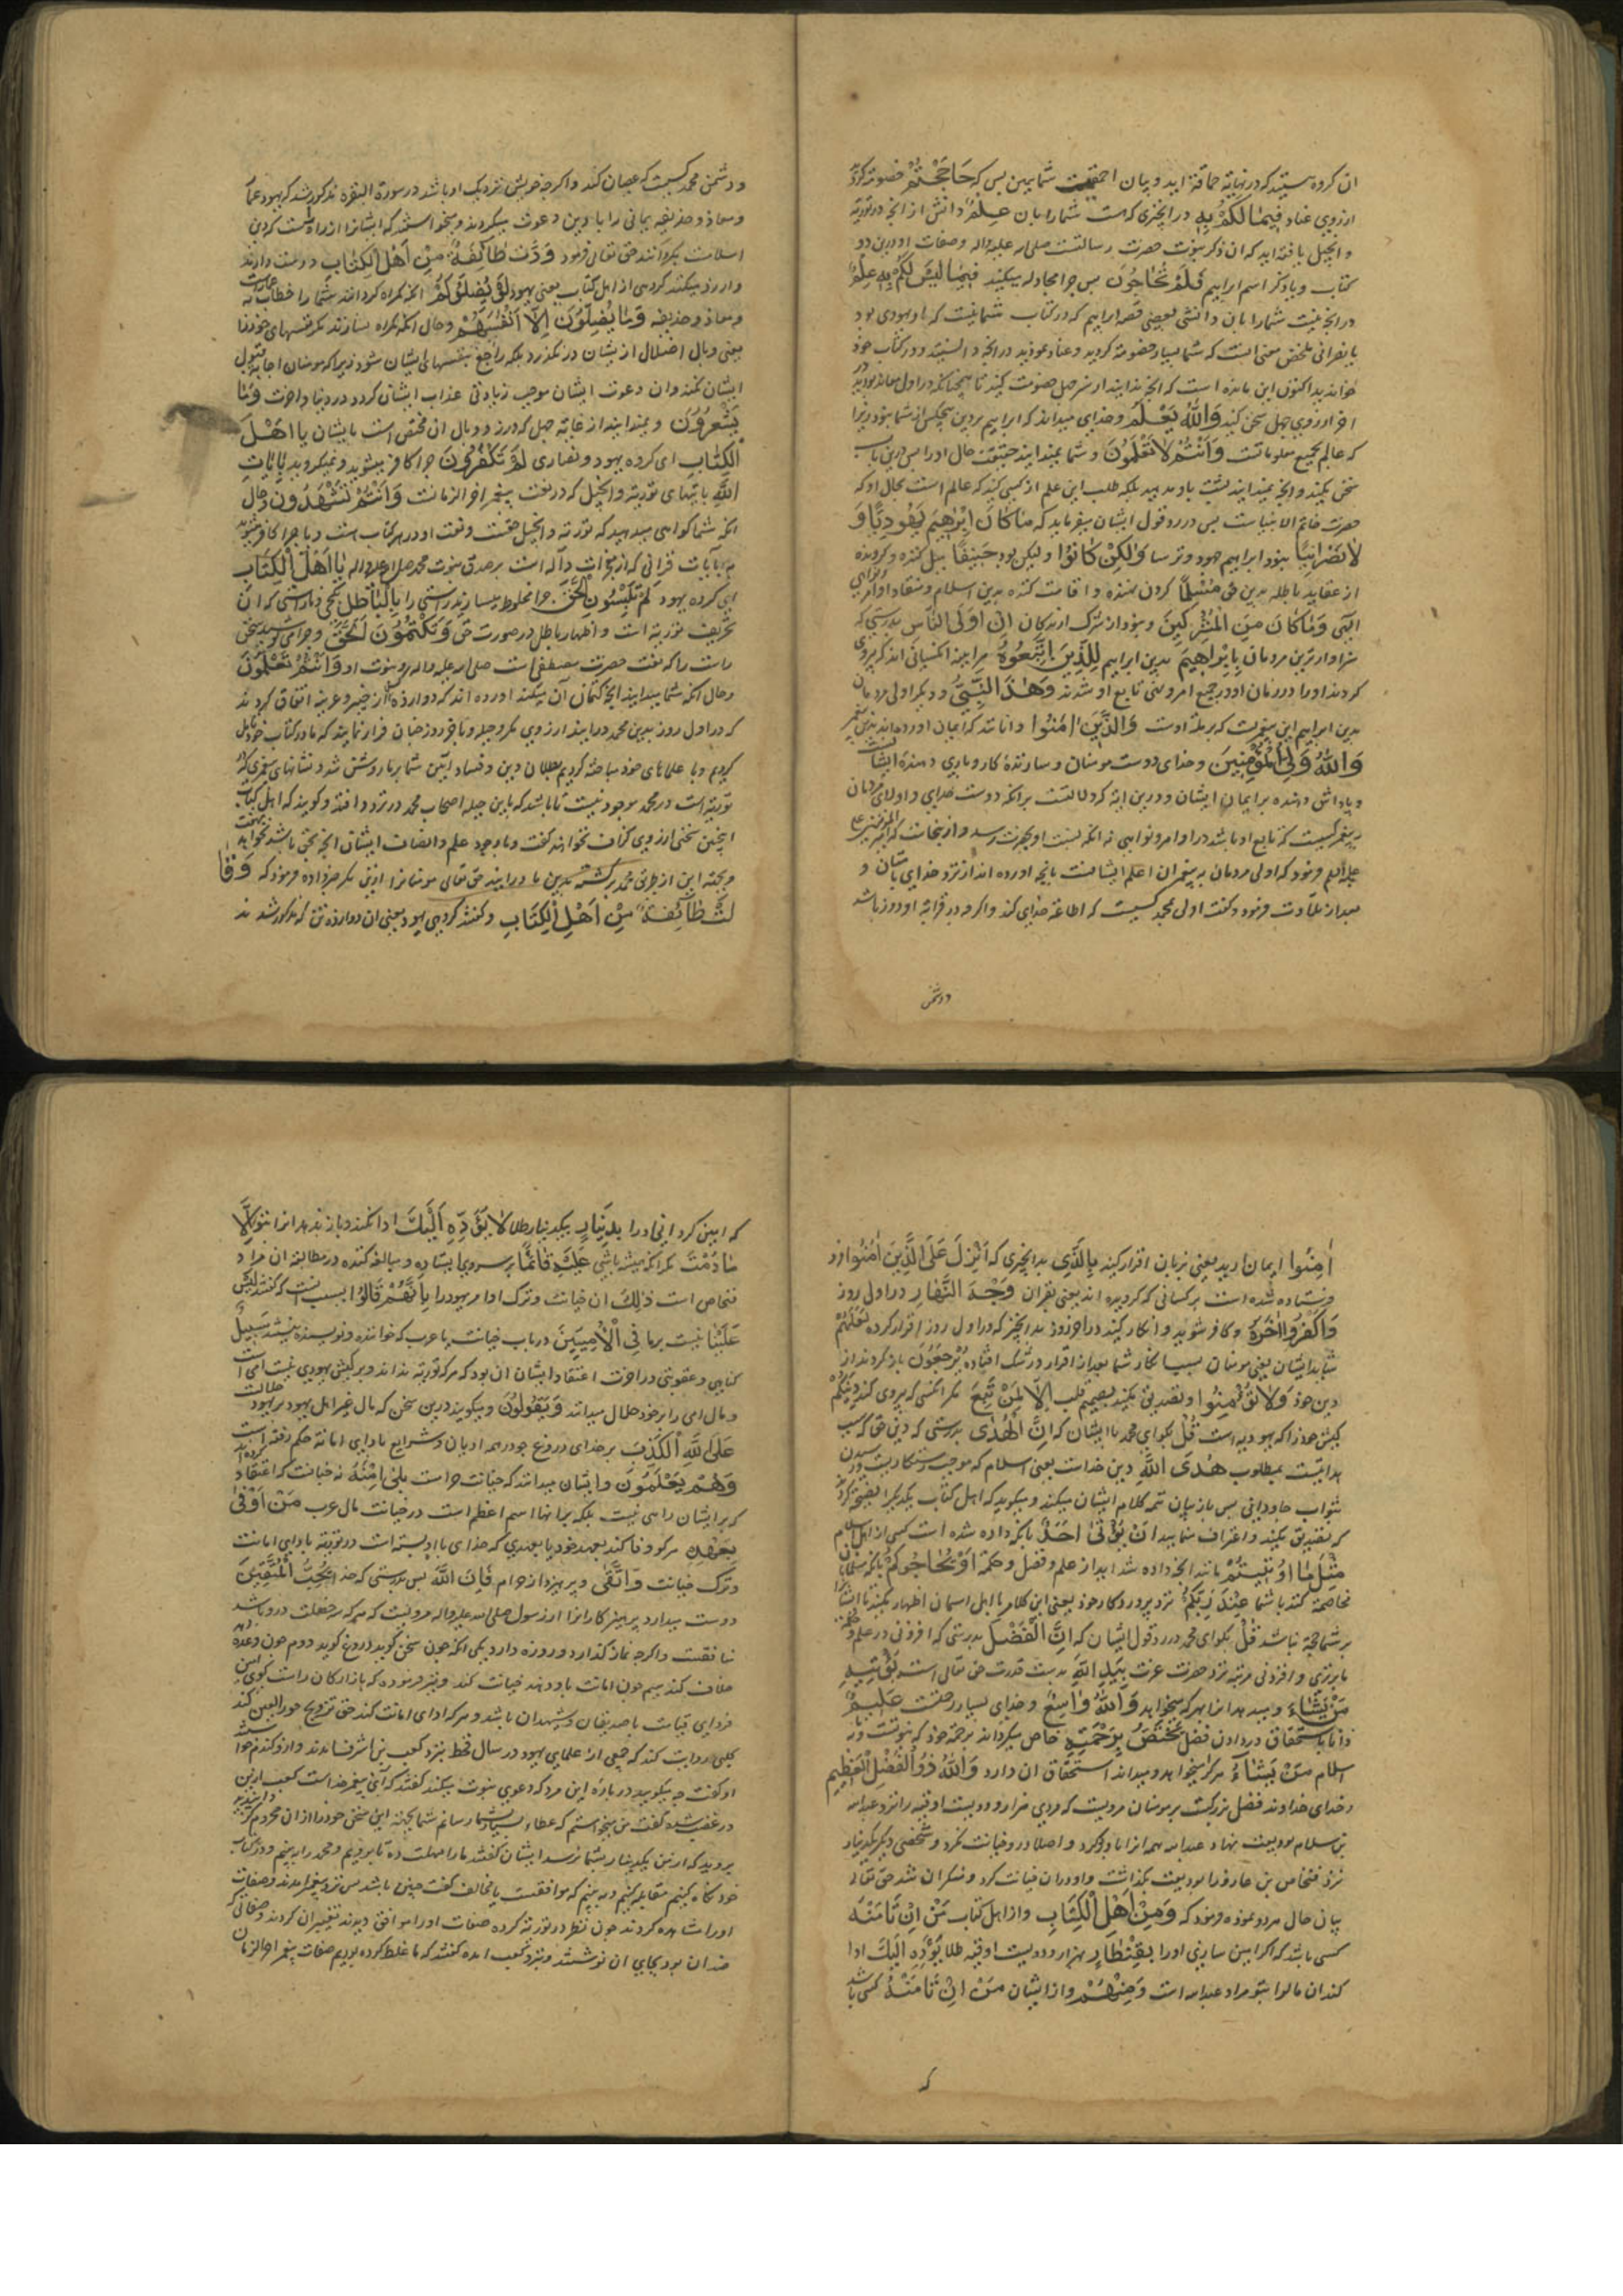 ان گروه هستید که در نهایة حماقة اید و بیان احمقیت شما همین بس که حَاجَجْتُمْ خصومة کردید
از روی عناد فِيمَا لَكُمْ بِهِ در انچیزی که هست شما را بان عِلْمٌ دانش از انچه در توریة
و انجیل یافته اید که ان ذکر نبوت حضرت رسالتست صلی الله علیه واله و صفات او درین دو
کتاب و یا ذکر اسم ابراهیم فَلِمَ تُحَاجُّونَ پس چرا مجادله میکنید فِيمَا لَيْسَ لَكُمْ بِهِ عِلْمٌ
در انچه نیست شما را بان دانشی یعنی قصه ابراهیم که در کتاب شما نیست که او یهودی بود
یا نصرانی ملخص معنی انست که شما بسیار خصومة کردید و عناد نمودید در انچه دانستید و در کتاب خود
خوانده اید اکنون این مانده است که انچه ندانید از سر جهل خصومت کنید تا همچنانکه در اول معاند بودید
اخر از روی جهل سخن کنید وَاللَّهُ يَعْلَمُ و خدای میداند که ابراهیم بر دین هیچکس از شما نبود زیرا
که عالم بجمیع معلوماتست وَأَنْتُمْ لَا تَعْلَمُونَ و شما نمیدانید حقیقت حال او را پس درین باب
سخن مکنید و انچه نمیدانید نسبت باو مدهید بلکه طلب این علم از کسی کنید که عالم است بحال او که
حضرت خاتم الانبیاست پس در رد قول ایشان میفرماید که مَا كَانَ إِبْرَاهِيمُ يَهُودِيًّا وَ
لَا نَصْرَانِيًّا نبود ابراهیم جهود و ترسا وَلَكِنْ كَانُوا و لیکن بود حَنِيفًا میل کننده و گرونده
از عقاید باطله بدین حق مُسْلِمًا گردن نهنده و اقامت کننده بدین اسلام و منقاد اوامر و نواهی
الهی وَمَا كَانَ مِنَ الْمُشْرِكِينَ و نبود از شرک ارندگان إِنَّ أَوْلَى النَّاسِ بدرستی که
سزاوارترین مردمان بِإِبْرَاهِيمَ بدین ابراهیم لَلَّذِينَ اتَّبَعُوهُ هر اینه انکسانی اند که پیروی
کردند او را در زمان او در جمیع امر و نهی تابع او شدند وَهَذَا النَّبِيُّ و دیگر اولی مردمان
بدین ابراهیم این پیغمبرست که بر ملة اوست وَالَّذِينَ آمَنُوا و انانند که ایمان اورده اند بدین پیغمبر
وَاللَّهُ وَلِيُّ الْمُؤْمِنِينَ و خدای دوست مومنان و سازندهٔ کار و یاری دهندهٔ ایشانست
و پاداش دهنده بر ایمان ایشان و درین ایة که دلالتست برانکه دوست خدای و اولای مردمان
به پیغمبر کسیست که تابع او باشد در اوامر و نواهی نه انکه نسبت او بحضرت رسد و از ینجاست که امیرالمؤمنین علی
علیه السلم فرمود که اولی مردمان به پیغمبران اعلم ایشانست بانچه اورده اند از نزد خدای باشان و
بعد از تلاوت فرمود و گفت اولی محمد کسیست که اطاعة خدای کند و اگرچه در قرابة او دور باشد
و دشمن
و دشمن محمد کسیست که عصیان کند و اگرچه خویش نزدیک او باشد در سورة البقره مذکور شد که یهود عمار
و معاذ و حذیفه یمانی را با دین دعوت میکردند و میخواستند که ایشانرا از راه راست کردن
اسلامست بگردانند حق تعالی فرمود وَدَّتْ طَائِفَةٌ مِنْ أَهْلِ الْكِتَابِ دوست دارند
و ارزو میکنند گروهی از اهل کتاب یعنی یهود لَوْ يُضِلُّونَكُمْ انکه گمراه گردانند شما را خطاب به عمارست
و معاذ و حذیفه وَمَا يُضِلُّونَ إِلَّا أَنْفُسَهُمْ و حال انکه گمراه نسازند مگر نفسهای خود را
یعنی وبال اضلال از یشان در نگذرد بلکه راجع بنفسهای ایشان شود زیرا که مومنان اجابة قبول
ایشان نکنند و ان دعوت ایشان موجب زیادتی عذاب ایشان گردد در دنیا و اخرت وَمَا
يَشْعُرُونَ و نمیدانند از غایة جهل که وزر و وبال ان مختص است بایشان يَا أَهْلَ
الْكِتَابِ ای گروه یهود و نصاری لِمَ تَكْفُرُونَ چرا کافر میشوید و نمیگروید بِآيَاتِ
اللَّهِ بایتهای توریة و انجیل که در نعت پیغمبر اخر الزمانست وَأَنْتُمْ تَشْهَدُونَ و حال
انکه شما گواهی میدهید که توریة و انجیل حقست و نعت او در هر کتاب هست و یا چرا کافر میشوید
بایات قرانی که از معجزات داله است بر صدق نبوت محمد صلی الله علیه واله يَا أَهْلَ الْكِتَابِ
ای گروه یهود لِمَ تَلْبِسُونَ الْحَقَّ چرا مخلوط میسازید راستی را بِالْبَاطِلِ بکجی و ناراستی که ان
تحریف توریة است و اظهار باطل در صورت حق وَتَكْتُمُونَ الْحَقَّ و چرا می پوشید سخن
راست را که نعت حضرت مصطفی است صلی الله علیه واله و نبوت او وَأَنْتُمْ تَعْلَمُونَ
و حال انکه شما میدانید انچه کتمان آن میکنید اورده اند که دوازده کس از خیبر و عرینه اتفاق کردند
که در اول روز بدین محمد درایند از روی مکر و حیله و باخر روز چنان فرا نمایند که ما در کتاب خود تامل
کردیم و با علمای خود مباحثه کردیم بطلان دین و فساد ایین شما بر ما روشن شد و نشانهای پیغمبری که در
توریة است در محمد موجود نیست تا باشد که باین حیله اصحاب محمد در تردد افتند و گویند که اهل کتاب
اینچنین سخنی از روی گزاف نخواهند گفت و با وجود علم و انصاف ایشان انچه بحق باشد خواهند گفت
و بجهة این از طریق محمد برگشته بدین ما درایند حق تعالی مومنانرا ازین مکر خبر داده فرمود که وَقَا
لَتْ طَائِفَةٌ مِنْ أَهْلِ الْكِتَابِ و گفتند گروهی یهود یعنی ان دوازده تن که مذکور شدند
آمِنُوا ایمان ارید یعنی بزبان اقرار کنید بِالَّذِي بدانچیزی که أُنْزِلَ عَلَى الَّذِينَ آمَنُوا فرو
فرستاده شده است بر کسانی که گرویده اند یعنی بقران وَجْهَ النَّهَارِ در اول روز
وَاكْفُرُوا آخِرَهُ و کافر شوید و انکار کنید در اخر روز بدانچیز که در اول روز اقرار کرده لَعَلَّهُمْ
شاید ایشان یعنی مومنان بسبب انکار شما بعد از اقرار در شک افتاده يَرْجِعُونَ بازگردند از
دین خود وَلَا تُؤْمِنُوا و تصدیق مکنید بصمیم قلب إِلَّا لِمَنْ تَبِعَ مگر انکسی که پیروی کند دِينَكُمْ
کیش خود را که یهودیه است قُلْ بگو ای محمد با ایشان که إِنَّ الْهُدَى بدرستی که دین حق که سبب
هدایتست بمطلوب هُدَى اللَّهِ دین خداست یعنی اسلام که موجب رستگاریست و رسیدن
بثواب جاودانی پس باز بیان تتمه کلام ایشان میکند و میگوید که اهل کتاب یکدیگرا نصیحة کرده
که تصدیق مکنید و اعتراف منمایید أَنْ يُؤْتَى أَحَدٌ بانکه داده شده است کسی از اهل اسلام
مِثْلَ مَا أُوتِيتُمْ مانند انچه داده شده اید از علم و فضل و حکمة أَوْ يُحَاجُّوكُمْ یا انکه مسلمانان
مخاصمة کنند با شما عِنْدَ رَبِّكُمْ نزد پروردگار خود یعنی این کلام با اهل اسمان اظهار مکنید تا ایشانرا
بر شما حجة نباشد قُلْ بگو ای محمد در رد قول ایشان که إِنَّ الْفَضْلَ بدرستی که افزونی در علم و حکمة
یا برتری و افزونی مرتبه نزد حضرت عزت بِيَدِ اللَّهِ بدست قدرت حق تعالی است يُؤْتِيهِ
مَنْ يَشَاءُ و میدهد انرا بهر که میخواهد وَاللَّهُ وَاسِعٌ و خدای بسیار رحمتست عَلِيمٌ
دانا باستحقاق در دادن فضل يَخْتَصُّ بِرَحْمَتِهِ خاص میگرداند برحمة خود که نبوتست و یا
اسلام مَنْ يَشَاءُ هر که میخواهد و میداند استحقاق ان دارد وَاللَّهُ ذُو الْفَضْلِ الْعَظِيمِ
و خدای خداوند فضل بزرگست بر مومنان مرویست که مردی هزار و دویست اوقیه را نزد عبدالله
بن سلام بودیعت نهاد و عبدالله همه انرا باو رد کرد و اصلا درو خیانت نکرد و شخصی دیگر یکدینار
نزد فنخاص بن عازورا بودیعت بگذاشت و او دران خیانت کرد و منکران شد حق تعالی
بیان حال هر دو نموده فرمود که وَمِنْ أَهْلِ الْكِتَابِ و از اهل کتاب مَنْ إِنْ تَأْمَنْهُ
کسی باشد که اگر امین سازی او را بِقِنْطَارٍ بهزار و دویست اوقیه طلا يُؤَدِّهِ إِلَيْكَ ادا
کند ان مال را بتو مراد عبدالله است وَمِنْهُمْ و از ایشان مَنْ إِنْ تَأْمَنْهُ کسی باشد
که
که امین گردانی او را بِدِينَارٍ بیکدینار طلا لَا يُؤَدِّهِ إِلَيْكَ ادا نکند و باز ندهد انرا بتو إِلَّا
مَا دُمْتَ مگر انکه همیشه باشی عَلَيْهِ قَائِمًا بر سر وی ایستاده و مبالغه کننده در مطالبه ان مراد
فنخاص است ذَلِكَ ان خیانت و ترک ادا مر یهود را بِأَنَّهُمْ قَالُوا بسبب انست که گفتند لَيْسَ
عَلَيْنَا نیست بر ما فِي الْأُمِّيِّينَ در باب خیانت با عرب که خواننده و نویسنده نیستند سَبِيلٌ
گناهی و عقوبتی در اخرت اعتقاد ایشان ان بود که هر که توریة نداند و بر کیش یهودی نیست امی است
و مال امی را بر خود حلال میدانند وَيَقُولُونَ و میگویند درین سخن که مال غیر اهل یهود بر یهود حلالست
عَلَى اللَّهِ الْكَذِبَ بر خدای دروغ چه در همه ادیان و شرایع بادای امانة حکم رفته است
وَهُمْ يَعْلَمُونَ و ایشان میدانند که خیانت حرامست بَلَى نه خیانت که اعتقاد کرده اند
که بر ایشان راهی نیست بلکه بر انها اسم اعظم است در خیانت مال عرب مَنْ أَوْفَى
بِعَهْدِهِ هر که وفا کند بعهد خود یا بعهدی که خدای با او بسته است در توریة بادای امانت
و ترک خیانت وَاتَّقَى و بپرهیزد از حرام فَإِنَّ اللَّهَ پس بدرستی که خدا يُحِبُّ الْمُتَّقِينَ
دوست میدارد پرهیزکارانرا از رسول صلی الله علیه واله مرویست که هر که سه خصلت درو باشد
منافقست و اگرچه نماز گذارد و روزه دارد یکی انکه چون سخن گوید دروغ گوید دوم چون وعده دهد
خلاف کند سیم چون امانت باو دهند خیانت کند و نیز فرموده که بازارگان راست گوی امین
فردای قیامت با صدیقان و شهیدان باشد و هر که ادای امانت کند حق تعالی تزویج حور العین کند
کلبی روایت کند که جمعی از علمای یهود در سال قحط نزد کعب بن اشرف شدند و ازو گندم خواستند
او گفت چه میگویید در بارهٔ این مرد که دعوی نبوت میکند گفتند که آری پیغمبر خداست کعب ازین
در غضب شده گفت من میخواستم که عطاء بسیار بشما رسانم شما بجهة این سخن خود را ازان محروم کردید
بروید که از من یکدینار بشما نرسد ایشان گفتند ما را مهلت ده تا برویم و محمد را ببینیم و در کتاب
خود نگاه کنیم مقابله کنیم و ببینیم که موافقست یا مخالف گفت چنین باشد پس نزد پیغمبر امدند و صفات
او را مشاهده کردند چون نظر در توریة کرده صفات او را موافق دیدند تغییران کردند و صفاتی که
ضد ان بود بجای ان نوشتند و نزد کعب امده گفتند که ما غلط کرده بودیم صفات پیغمبر اخر الزمان